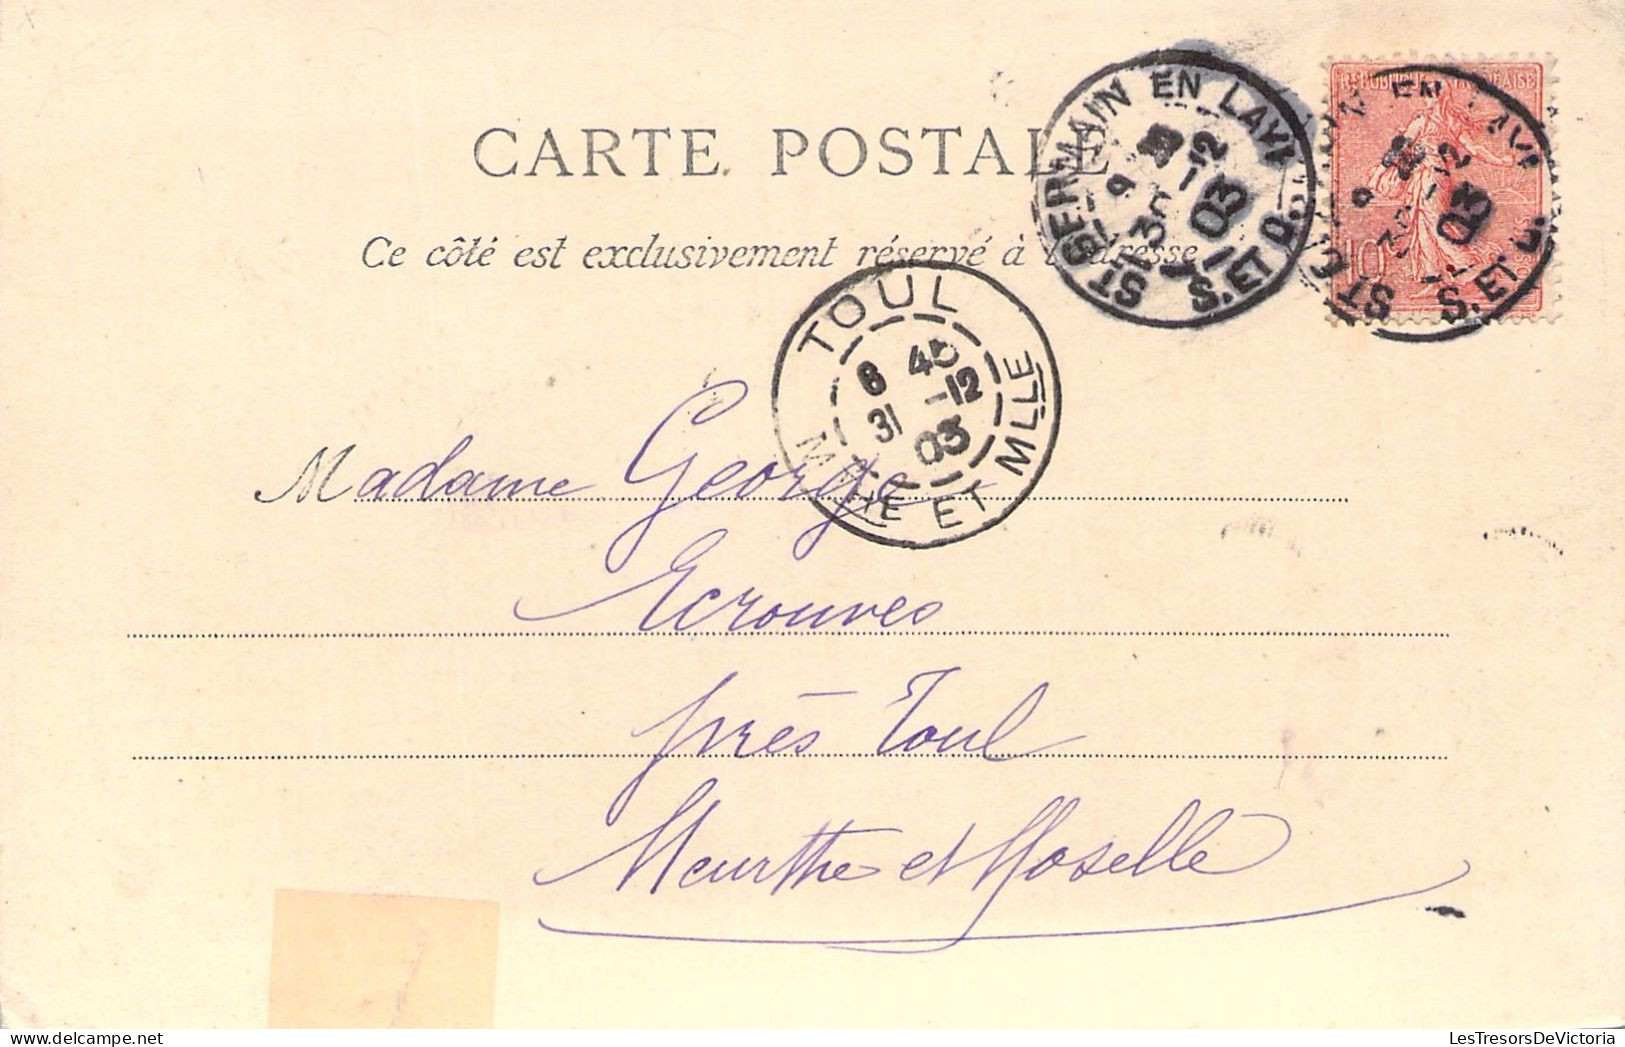 CARTE POSTALE
Ce côté est exclusivement réservé à l'adresse
ST GERMAIN EN LAYE
9
30 -12
03
S. ET O.
RÉPUBLIQUE FRANÇAISE
10
ST G EN LAYE
9
30 -12
03
S. ET O.
TOUL
8 45
31 -12
03
MTHE ET MLLE
Madame George
Ecrouves
près Toul
Meurthe et Moselle
LesTresorsDeVictoria